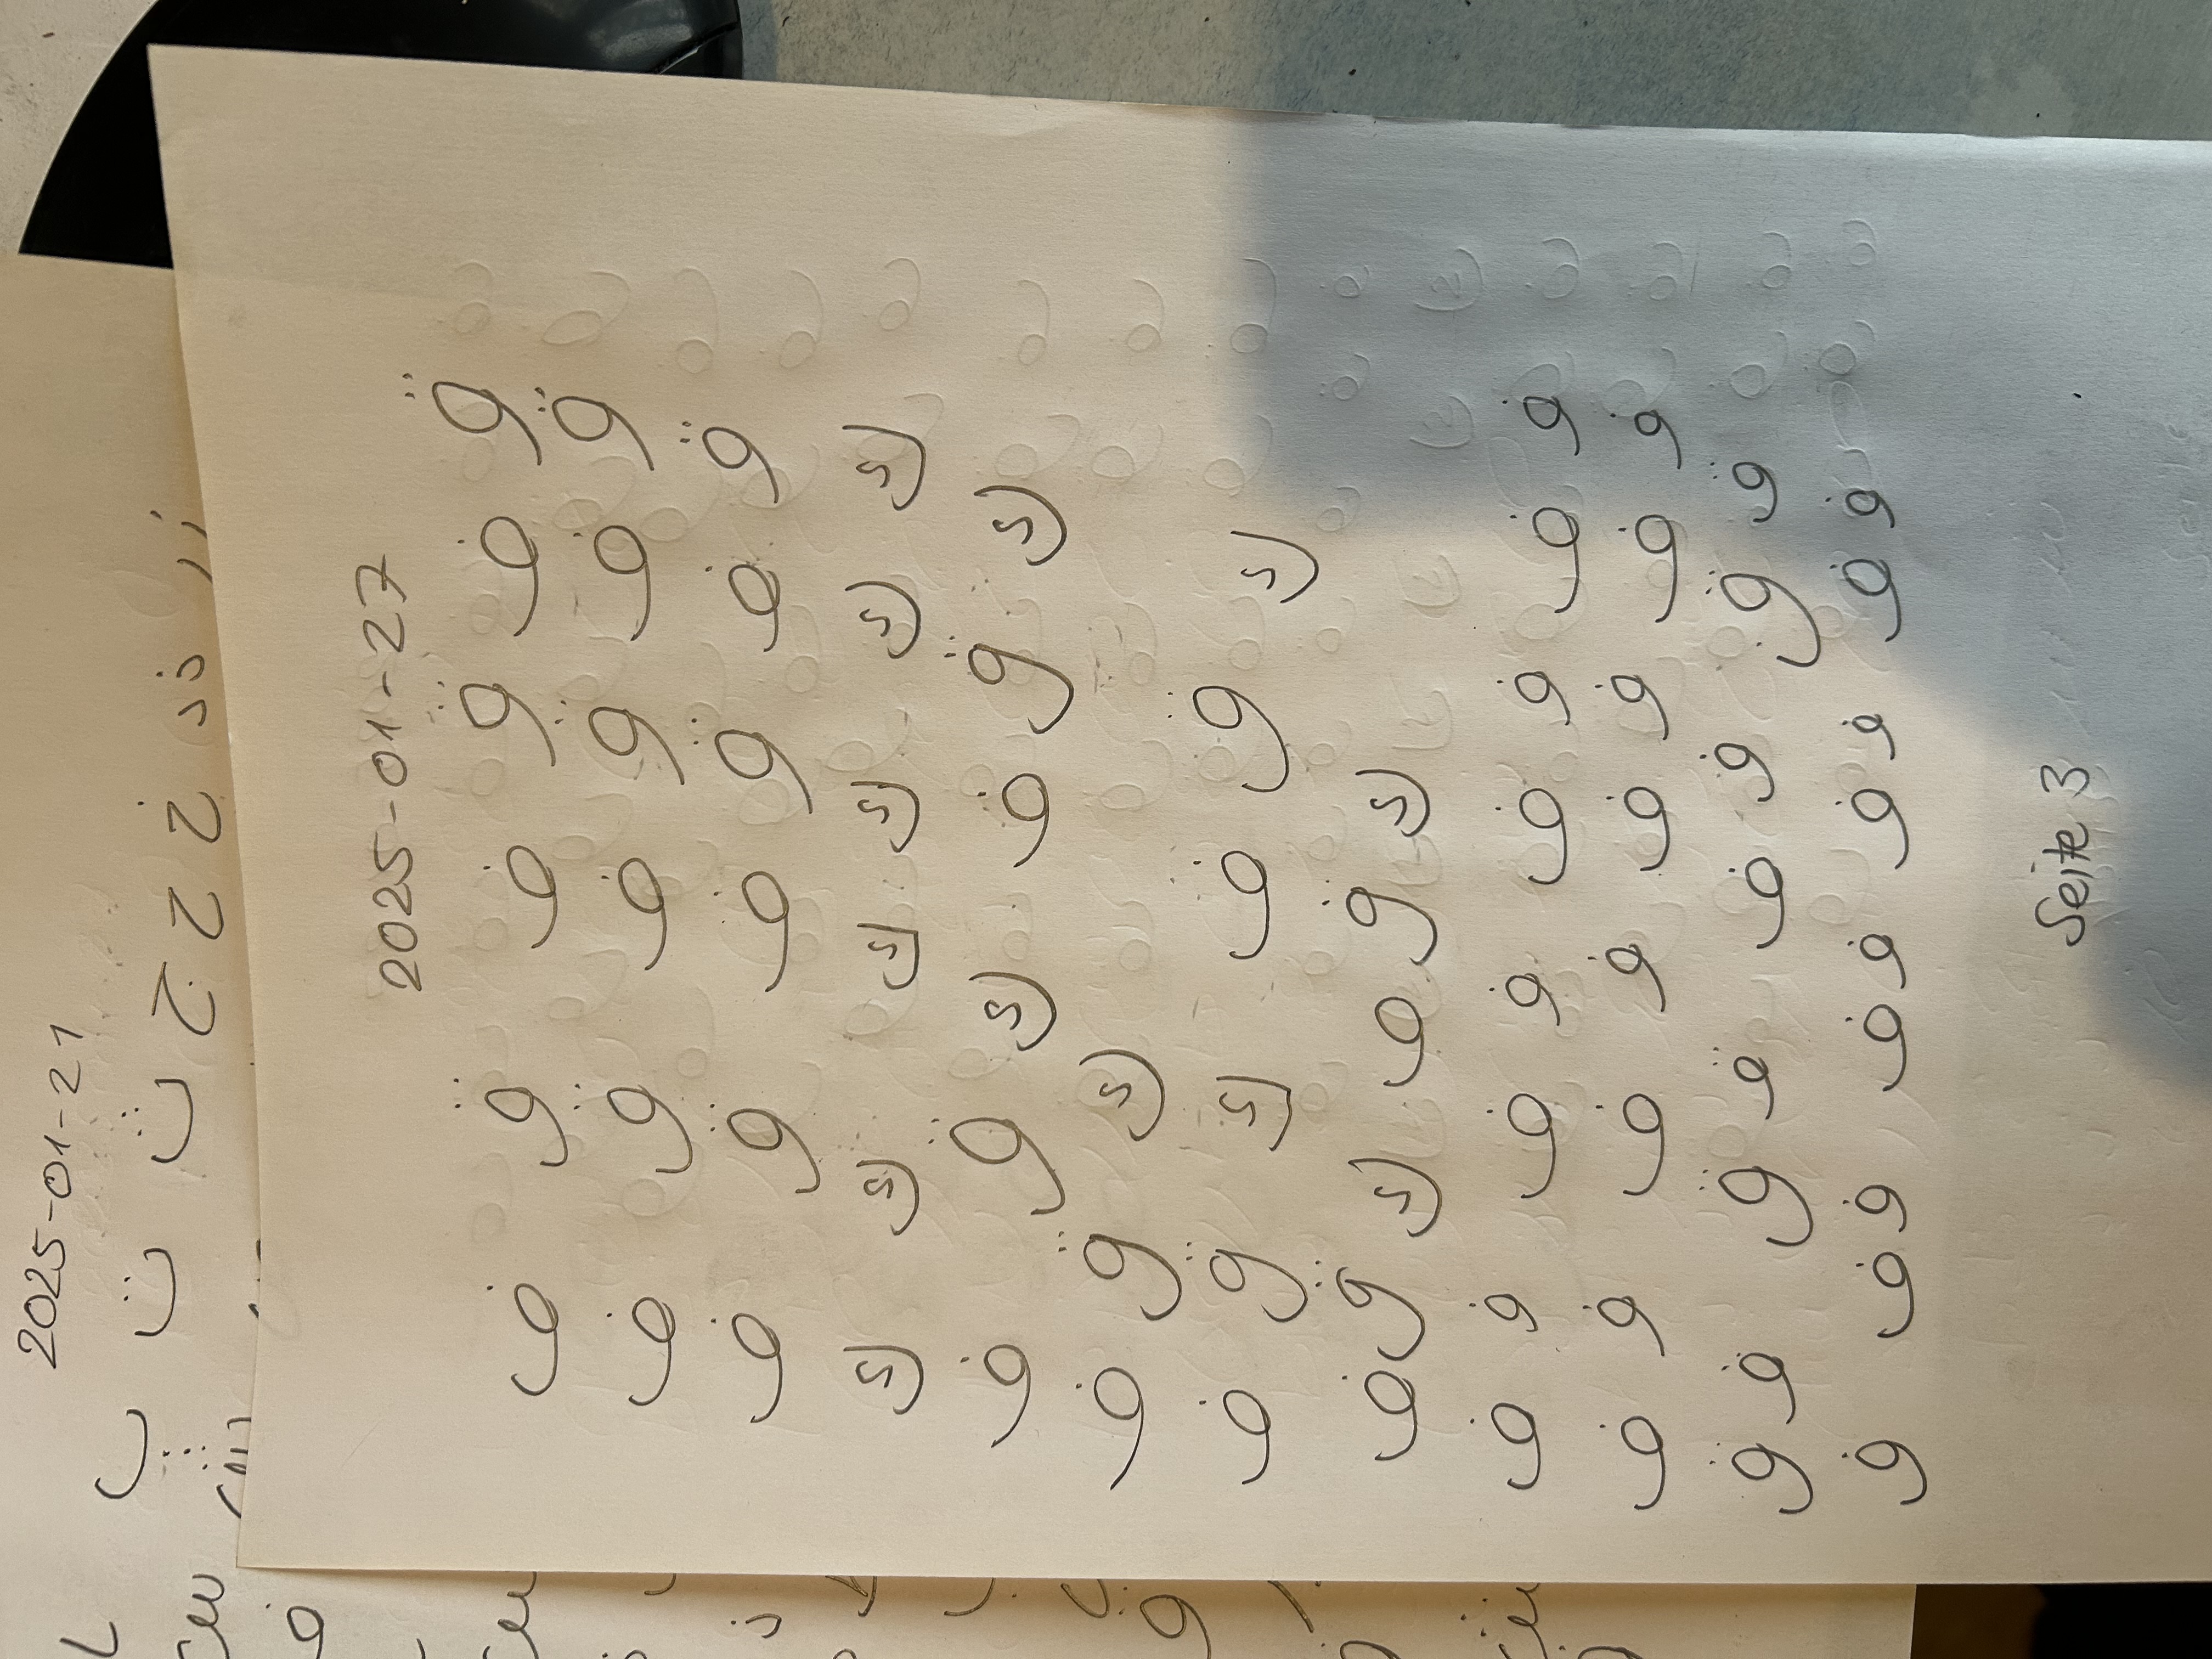 2025-01-21
2025-01-27
ق ف ق ف ق ف
ق ف ق ف ق ف
ق ف ق ف ق ف
ك ك ك ك ك ك
ك ق ف ك ق ف
ك ق ف
ك ق ف ك ق ف
ك ق ف ك ق ف
ف ف ف ف ف ف ف ف
ف ف ف ف ف ف ف ف
ق ق ف ف ق ق ف ق
ف ف ف ف ف ف ف ف ف
Seite 3